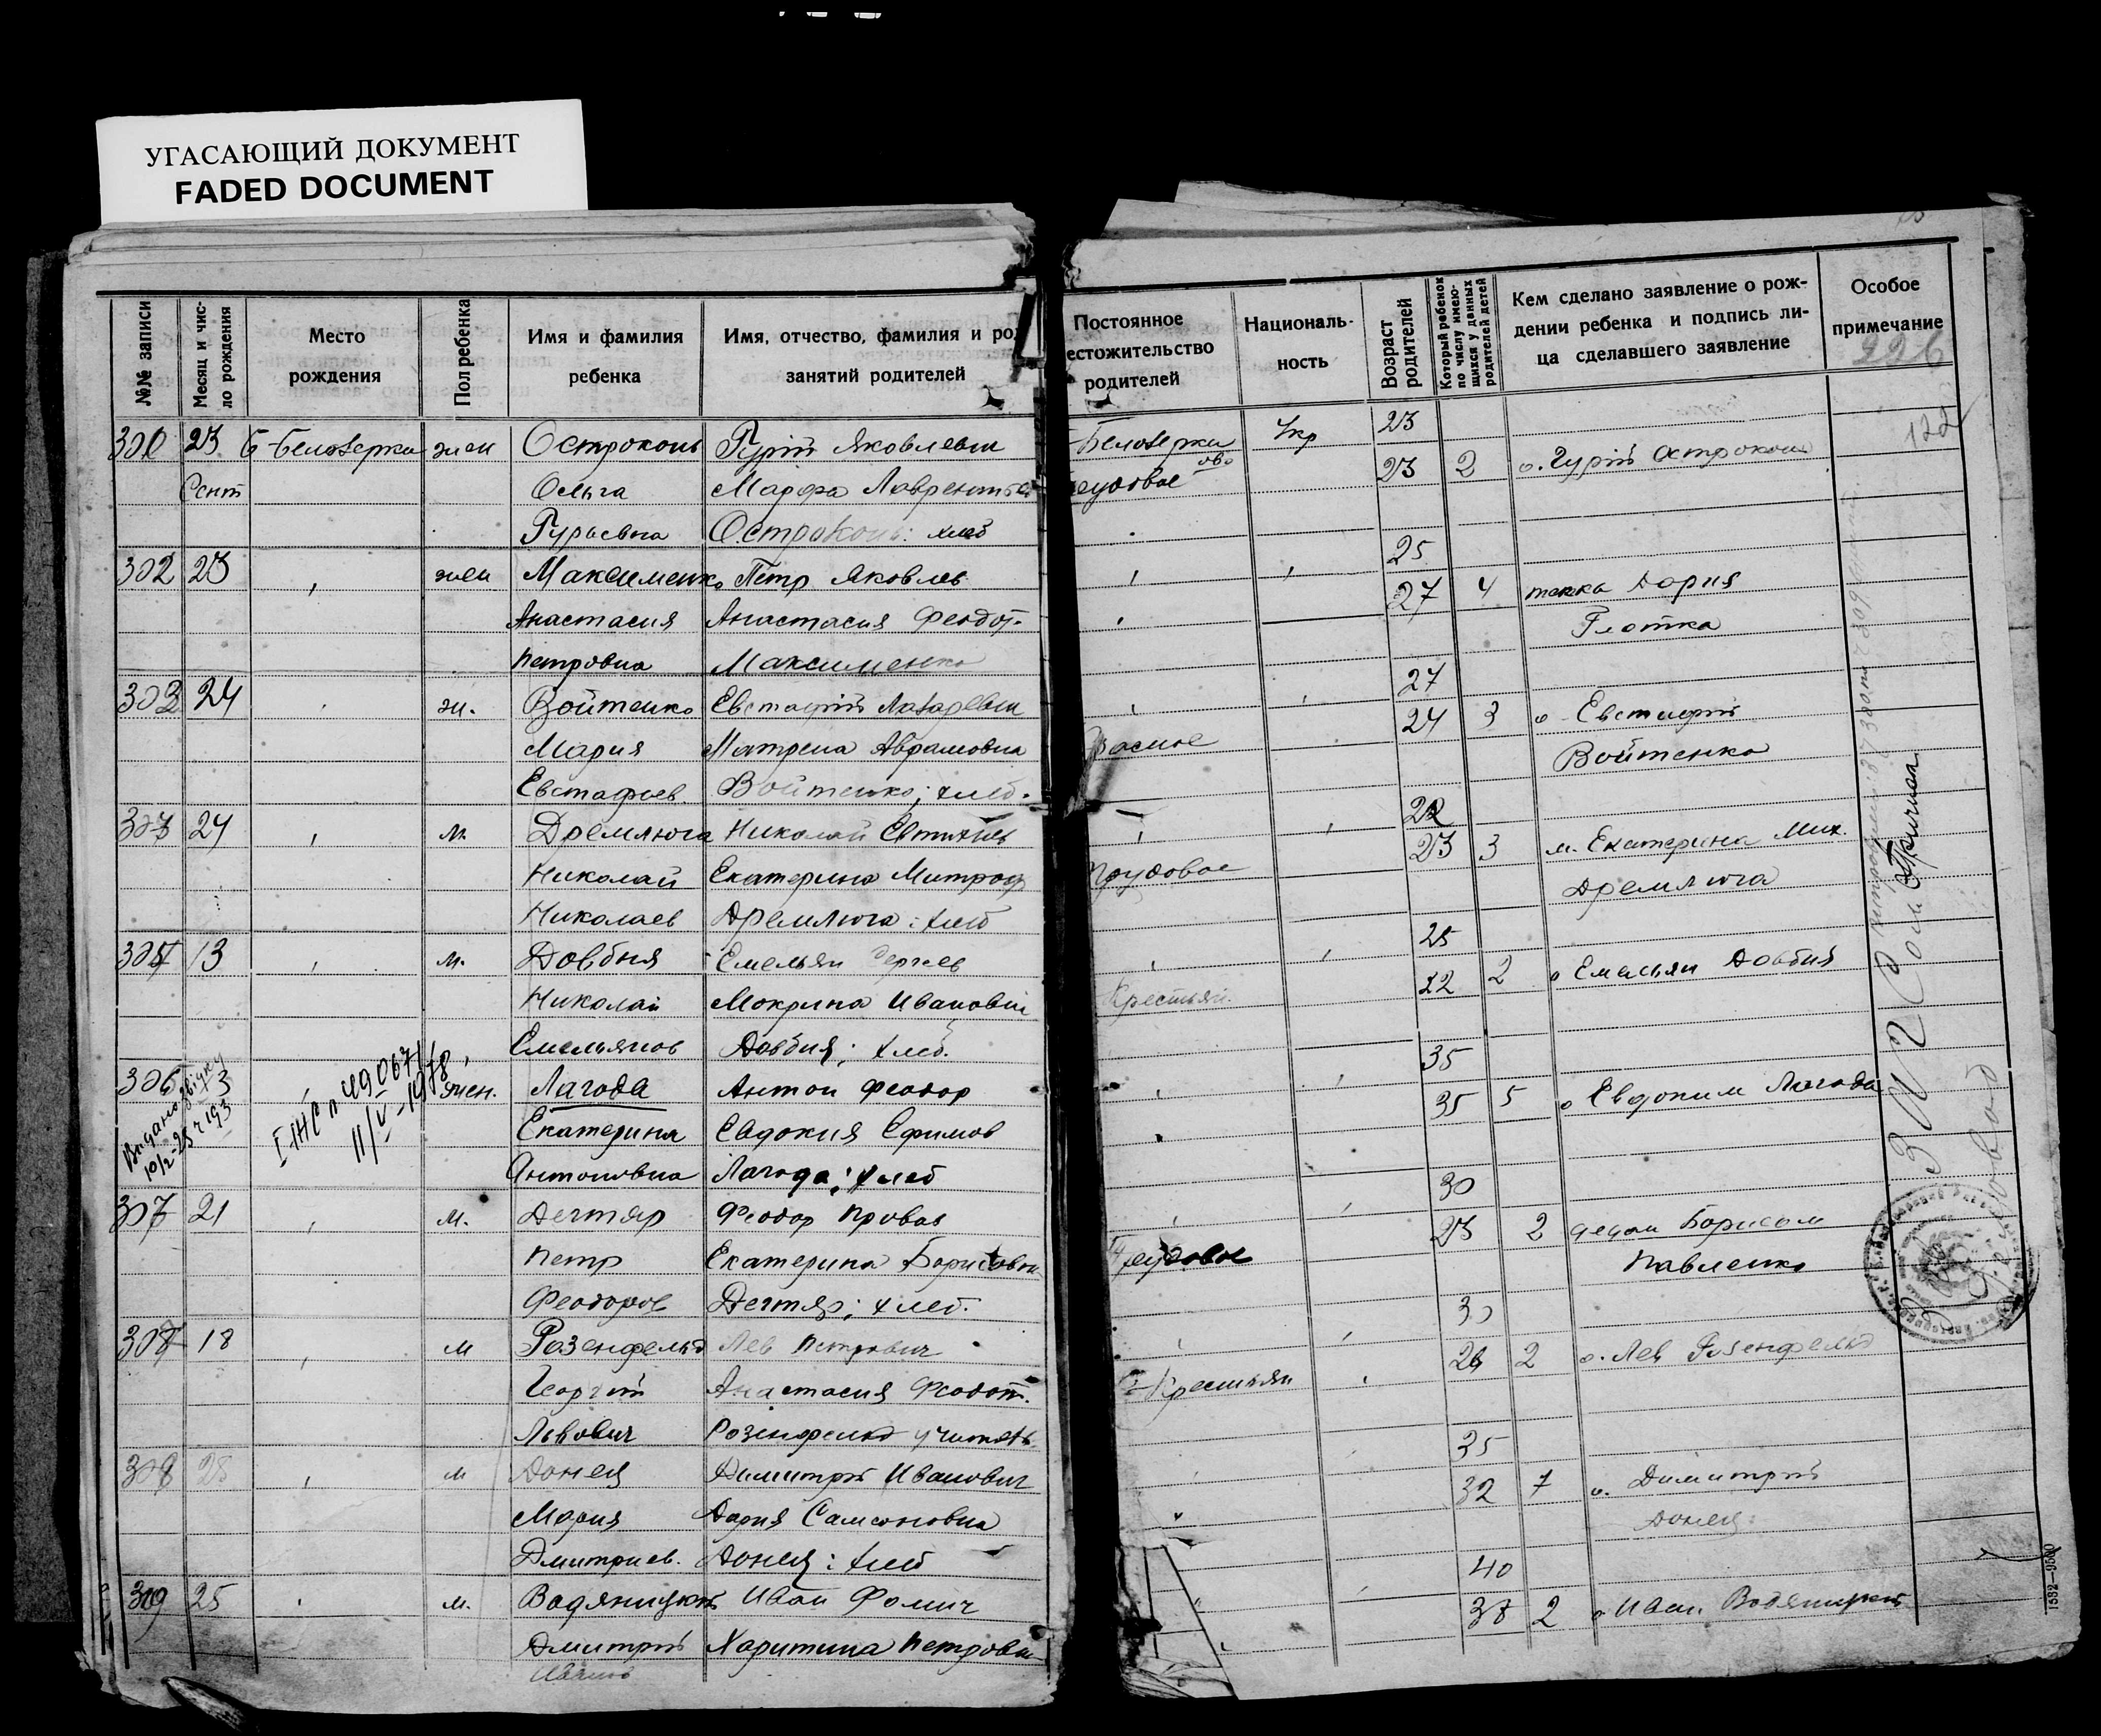 УГАСАЮЩИЙ ДОКУМЕНТ
FADED DOCUMENT
№№ записи
Месяц и чис-
ло рождения
Место
рождения
Пол ребенка
Имя и фамилия
ребенка
Имя, отчество, фамилия и ро
занятий родителей
Постоянное
естожительство
родителей
Националь-
ность
Возраст
родителей
Который ребенок
по числу имею-
щихся у данных
родителей детей
Кем сделано заявление о рож-
дении ребенка и подпись ли-
ца сделавшего заявление
Особое
примечание
226
122
23 Б-Белозерка жен Остроконь Гурій Яковлевич Белозерка Укр 23
Сент Ольга Марфа Лаврентье 23 2 о. Гурій Остроконь
Гурьевна Остроконь: хлеб
302 23 жен Максименко Петр Яковлев 25
Анастасия Анастасия Феодот- 27 4 тетка Дария
Петровна Максименко Глотка
303 24 ж. Войтенко Евстафій Лазаревич 27
Мария Матрена Аврамовна 24 3 о Евстафій
Евстафиев Войтенко; хлеб. Войтенко
24 м. Дремлюга Николай Евтихіев 22
Николай Екатерина Митроф Трудовое 23 3 м. Екатерина Мит.
Николаев Дремлюга: хлеб Дремлюга
305 13 м. Довбня Емельян Сергеев 25
Николай Мокрина Ивановн Крестьян. 22 2 о Емельян Довбня
Емельянов Довбня; хлеб.
306 3 жен. Лагода Антон Феодор 35
Екатерина Евдокия Ефимов 35 5 о Евдоким Лагода
Антоновна Лагода; хлеб
Видано
10/2-25 г 193
490671
11/V-1978
307 21 м. Дегтяр Феодор Провов 30
Петр Екатерина Борисовн Трудовое 23 2 дедом Борисом
Феодоров Дегтяр; хлеб. Павленко
308 18 м Розенфельд Лев Петрович 30
Георгій Анастасия Феодот. Крестьян 26 2 о. Лев Розенфельд
Львович Розенфельд учитель
308 25 м Донец Димитрій Иванович 35
Мария Дария Самсоновна 32 7 о. Димитрій
Дмитриев. Донец: хлеб Донец
309 25 м. Водяницкій Иван Фомич 40
Дмитрій Харитина Петровн 37 2 о Иван Водяницкій
Иванов
ЗАГС
1532—9500